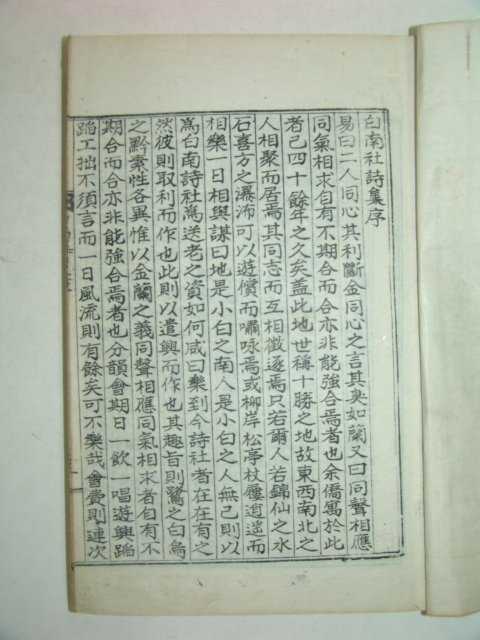 白南社詩集序
易曰二人同心其利斷金同心之言其臭如蘭又曰同聲相應
同氣相求自有不期合而合亦非能強合焉者也余僑寓於此
者已四十餘年之久矣盖此地世稱十勝之地故東西南北之
人相聚而居焉其同志而互相徵逐焉只若爾人若錦仙之水
石喜方之瀑沛可以遊償而嘯咏焉或柳岸松亭杖屨逍遙而
相樂一日相與謀曰地是小白之南人是小白之人無已則以
爲白南詩社爲送老之資如何咸曰樂到今詩社者在在有之
然彼則取利而作也此則以遣興而作也其趣旨則鷺之白烏
之黔素性各異惟以金蘭之義同聲相應同氣相求者自有不
期合而合亦非能強合焉者也分韻會期日一飮一唱遊興蹈
蹈工拙不須言而一日風流則有餘矣可不樂哉會費則連次